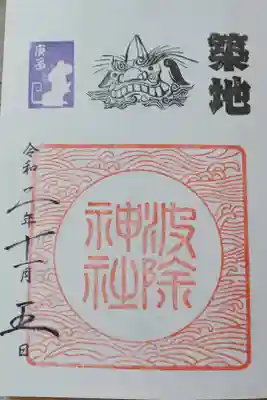 築地
庚子
波除
神社
令和二年十一月五日